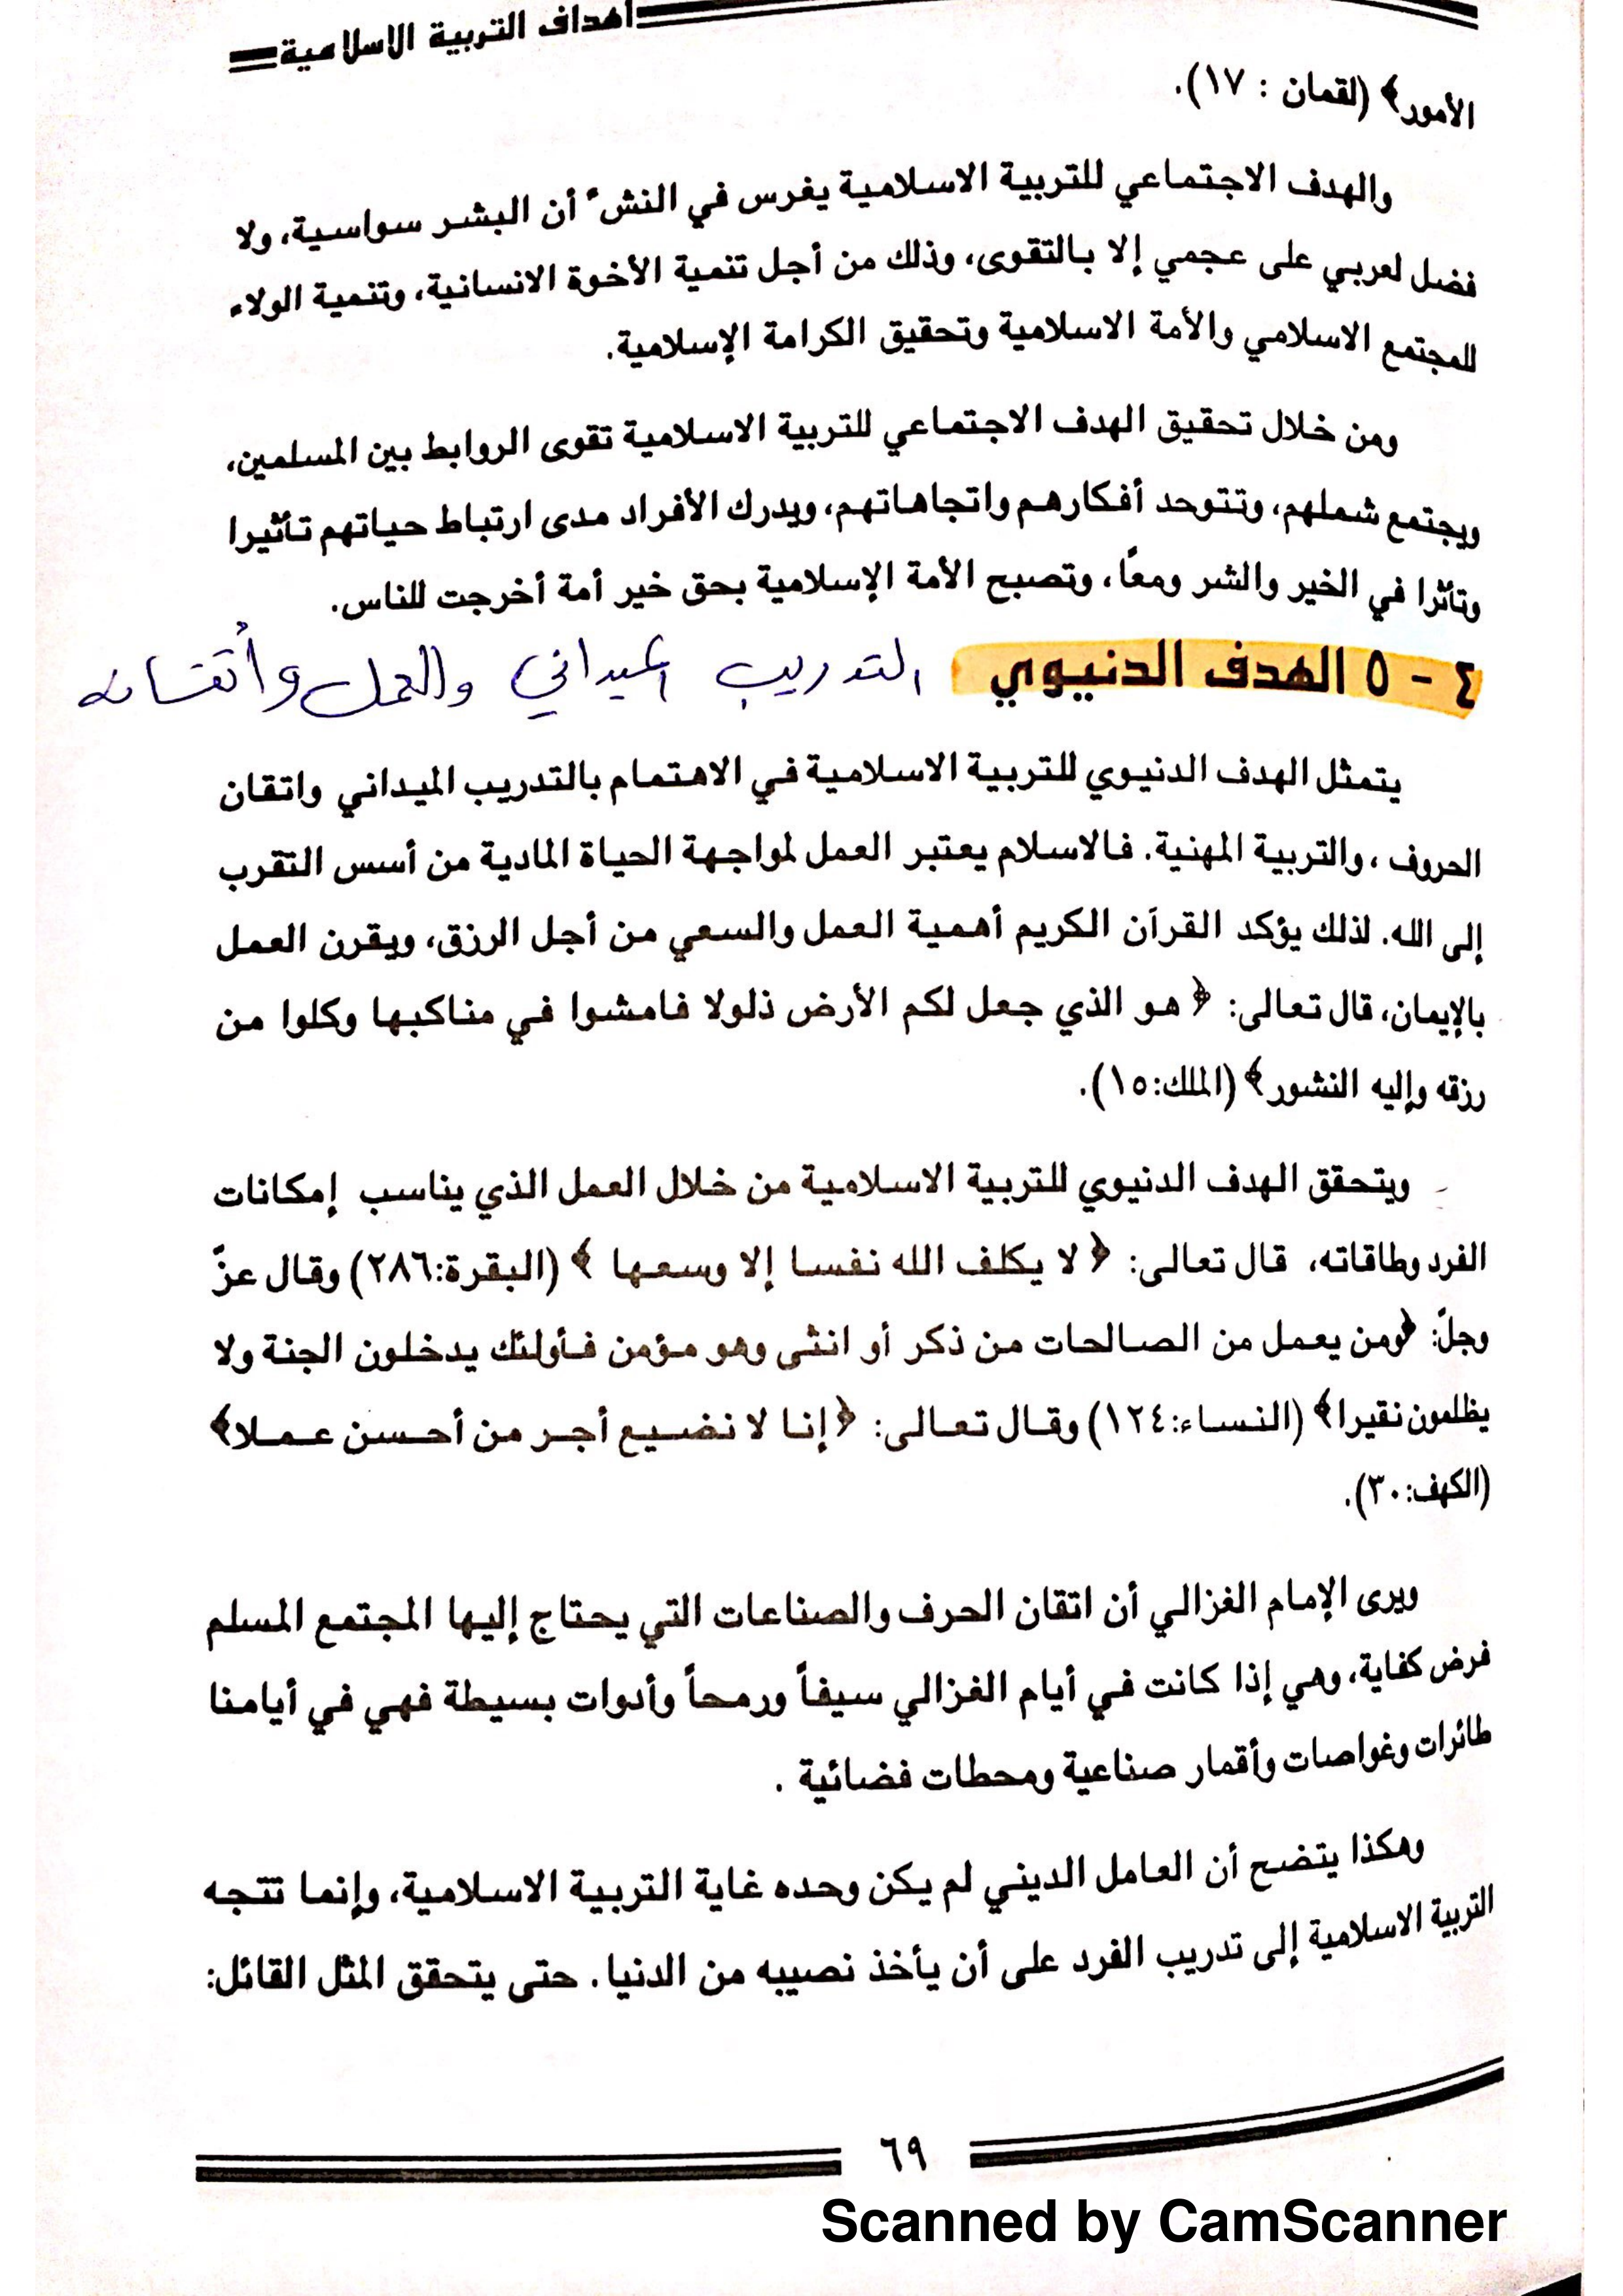 أهداف التربية الاسلامية
الأمور﴾ (لقمان : ١٧).
والهدف الاجتماعي للتربية الاسلامية يغرس في النشء أن البشر سواسية، ولا
فضل لعربي على عجمي إلا بالتقوى، وذلك من أجل تنمية الأخوة الانسانية، وتنمية الولاء
للمجتمع الاسلامي والأمة الاسلامية وتحقيق الكرامة الإسلامية.
ومن خلال تحقيق الهدف الاجتماعي للتربية الاسلامية تقوى الروابط بين المسلمين،
ويجتمع شملهم، وتتوحد أفكارهم واتجاهاتهم، ويدرك الأفراد مدى ارتباط حياتهم تأثيرا
وتأثرا في الخير والشر ومعاً، وتصبح الأمة الإسلامية بحق خير أمة أخرجت للناس.
٤ - ٥ الهدف الدنيوي التدريب الميداني والعمل وأتقانه
يتمثل الهدف الدنيوي للتربية الاسلامية في الاهتمام بالتدريب الميداني واتقان
الحروف ، والتربية المهنية. فالاسلام يعتبر العمل لمواجهة الحياة المادية من أسس التقرب
إلى الله. لذلك يؤكد القرآن الكريم أهمية العمل والسعي من أجل الرزق، ويقرن العمل
بالإيمان، قال تعالى: ﴿ هو الذي جعل لكم الأرض ذلولا فامشوا في مناكبها وكلوا من
رزقه وإليه النشور﴾ (الملك:١٥).
ويتحقق الهدف الدنيوي للتربية الاسلامية من خلال العمل الذي يناسب إمكانات
الفرد وطاقاته، قال تعالى: ﴿ لا يكلف الله نفسا إلا وسعها ﴾ (البقرة:٢٨٦) وقال عزّ
وجلّ: ﴿ومن يعمل من الصالحات من ذكر أو انثى وهو مؤمن فأولئك يدخلون الجنة ولا
يظلمون نقيرا﴾ (النساء:١٢٤) وقال تعالى: ﴿إنا لا نضيع أجر من أحسن عملا﴾
(الكهف:٣٠).
ويرى الإمام الغزالي أن اتقان الحرف والصناعات التي يحتاج إليها المجتمع المسلم
فرض كفاية، وهي إذا كانت في أيام الغزالي سيفاً ورمحاً وأدوات بسيطة فهي في أيامنا
طائرات وغواصات وأقمار صناعية ومحطات فضائية .
وهكذا يتضح أن العامل الديني لم يكن وحده غاية التربية الاسلامية، وإنما تتجه
التربية الاسلامية إلى تدريب الفرد على أن يأخذ نصيبه من الدنيا. حتى يتحقق المثل القائل:
٦٩
Scanned by CamScanner